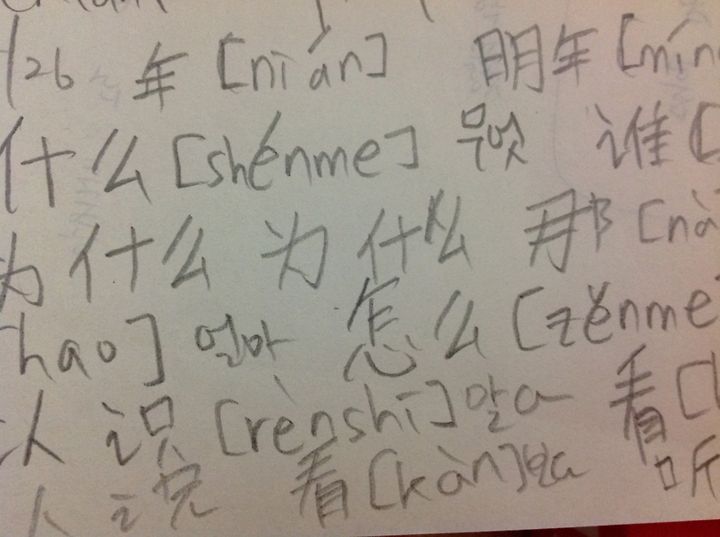 126 年 [nián] 明年 [mín
什么 [shénme] 무엇 谁 [
为什么 为什么 那 [nà
hao] 얼마 怎么 [zěnme
认识 [rènshi] 알a 看 [
人 说 看 [kàn] 보a 听